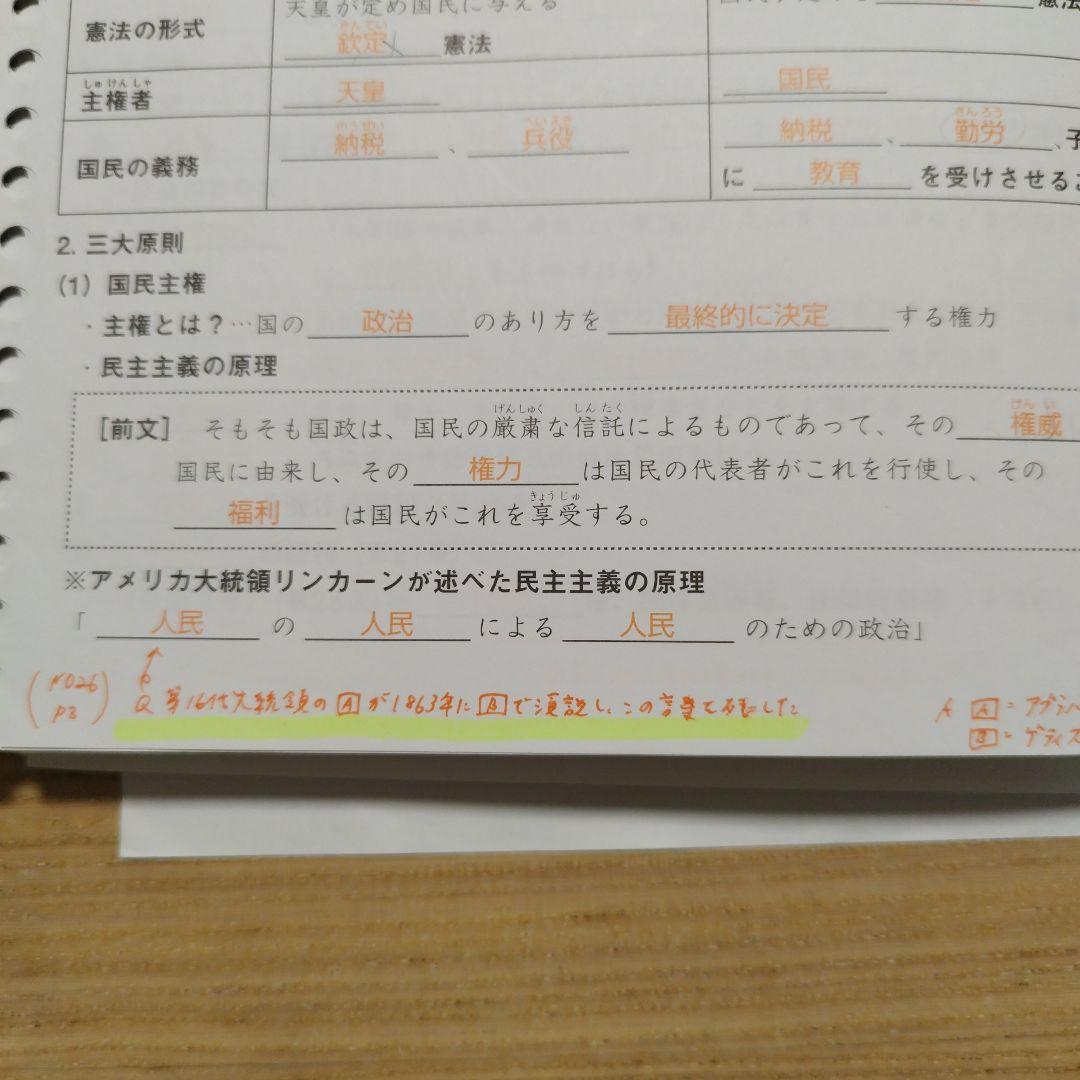 天皇が定め国民に与える
憲法の形式 欽定 憲法 憲法
主権者 天皇 国民
国民の義務 納税、兵役 納税、勤労、子
に 教育 を受けさせる
2. 三大原則
(1) 国民主権
・主権とは？…国の 政治 のあり方を 最終的に決定 する権力
・民主主義の原理
[前文] そもそも国政は、国民の厳粛な信託によるものであって、その 権威
国民に由来し、その 権力 は国民の代表者がこれを行使し、その
福利 は国民がこれを享受する。
※アメリカ大統領リンカーンが述べた民主主義の原理
「 人民 の 人民 による 人民 のための政治」
Q 第16代大統領の A が1863年に B で演説し、この言葉を残した
A A = アブラハ
B = ゲティス